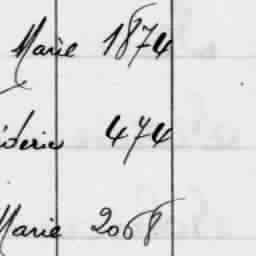 Marie 1874
474
Marie 2068